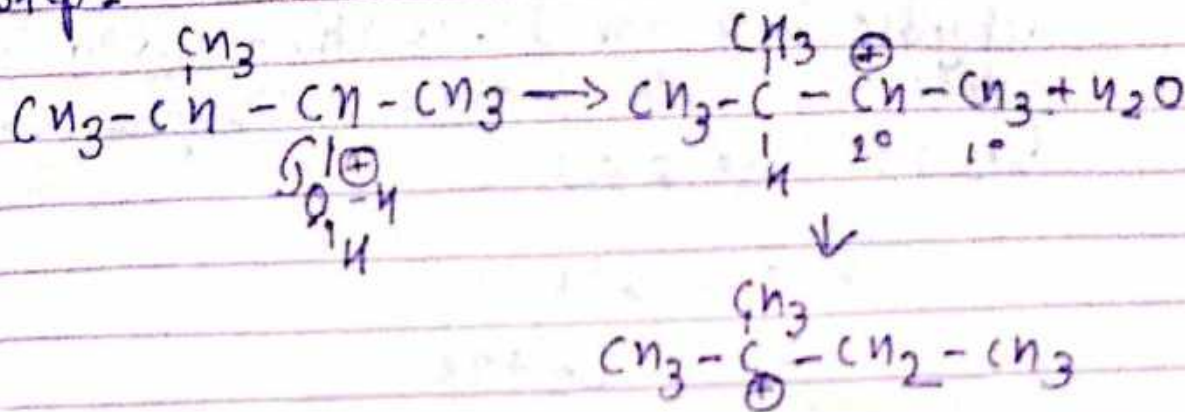 CH3 CH3 ⊕
CH3-CH-CH-CH3 → CH3-C-CH-CH3 + H2O
⊕ H 2° 1°
O-H
H
↓
CH3
CH3-C-CH2-CH3
⊕